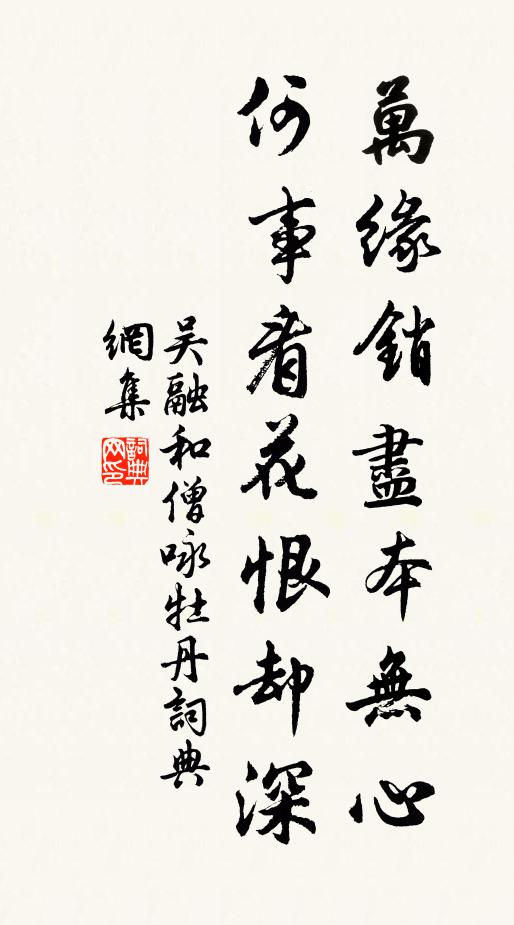 萬緣銷盡本無心
何事看花恨却深
吴融和僧咏牡丹詞典
網集
詞典网印